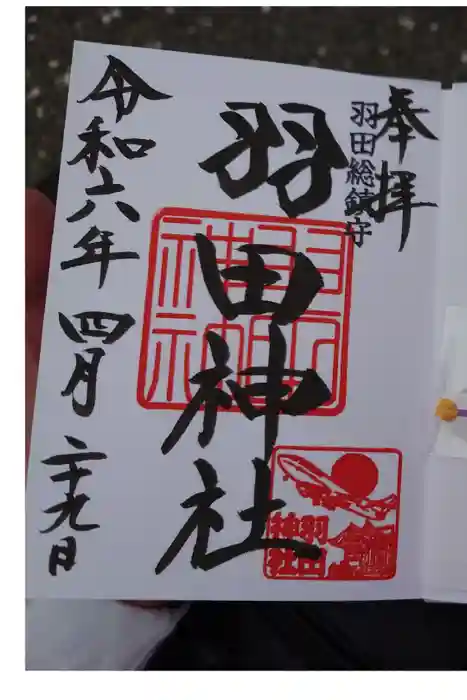 奉拝
羽田総鎮守
羽田神社
令和六年四月二十九日
羽田
神社